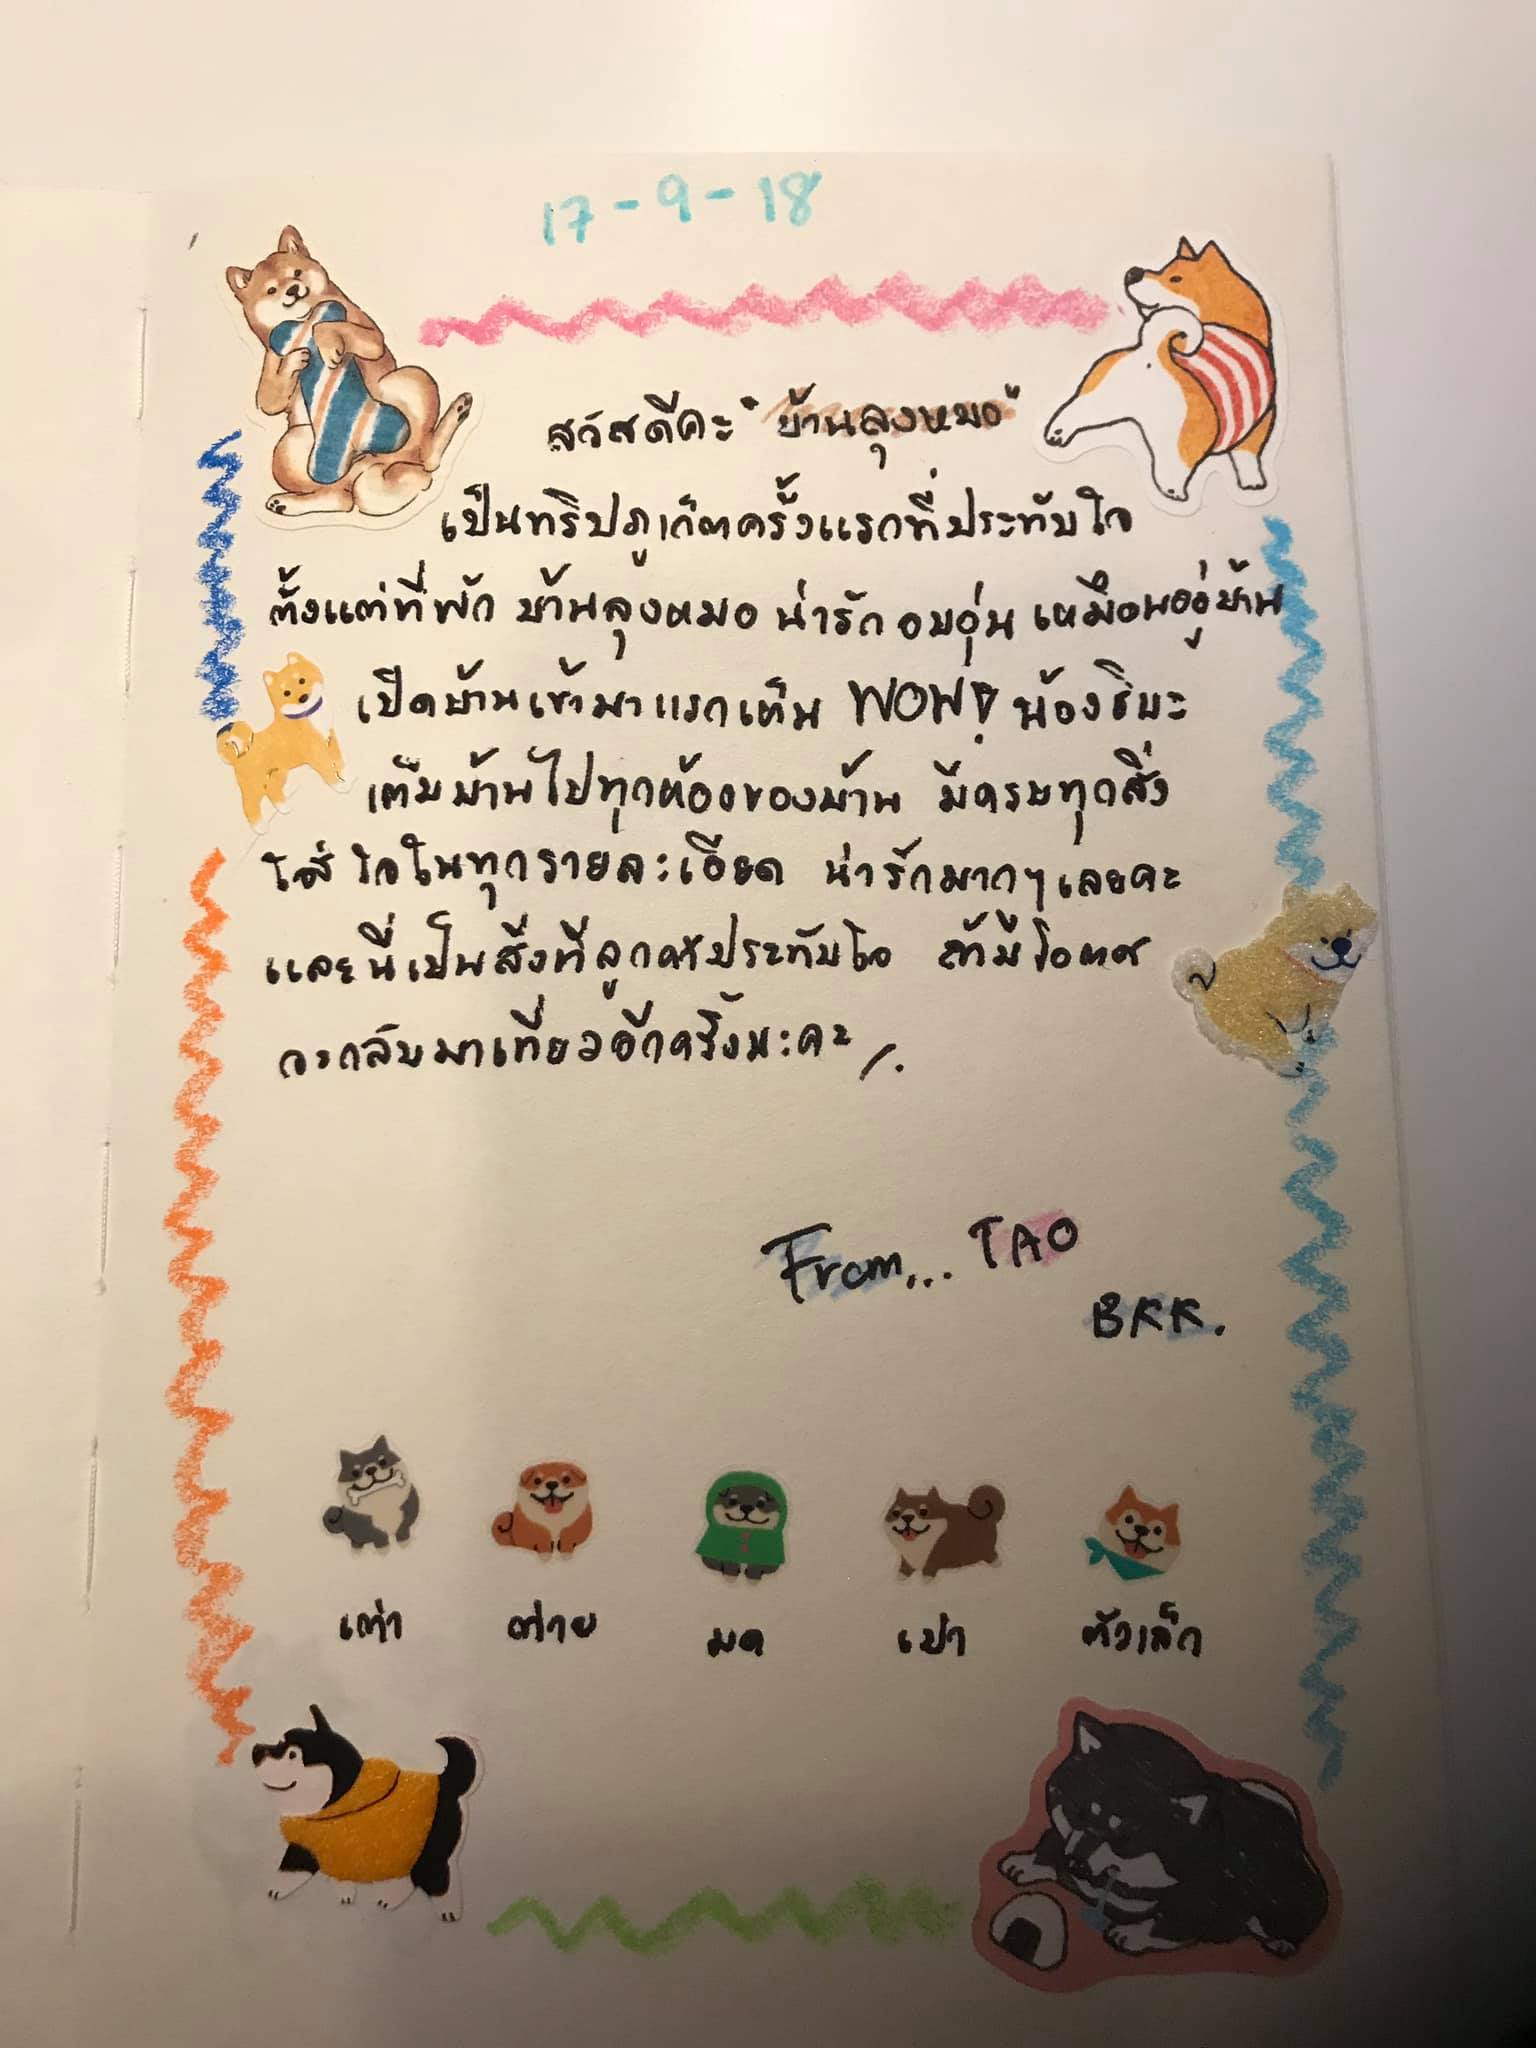 17-9-18
สวัสดีคะ "บ้านลุงหมอ"
เป็นทริปภูเก็ตครั้งแรกที่ประทับใจ
ตั้งแต่ที่พัก บ้านลุงหมอ น่ารัก อบอุ่น เหมือนอยู่บ้าน
เปิดบ้านเข้ามาแรกเห็น WOW! น้องชิบะ
เต็มบ้านไปทุกห้องของบ้าน มีครบทุกสิ่ง
ใส่ใจในทุกรายละเอียด น่ารักมากๆเลยคะ
และนี่เป็นสิ่งที่ลูกค้าประทับใจ ถ้ามีโอกาส
จะกลับมาเที่ยวอีกครั้งนะคะ /.
From... TAO
BKK.
เต่า ต่าย มด เป่า ตัวเล็ก